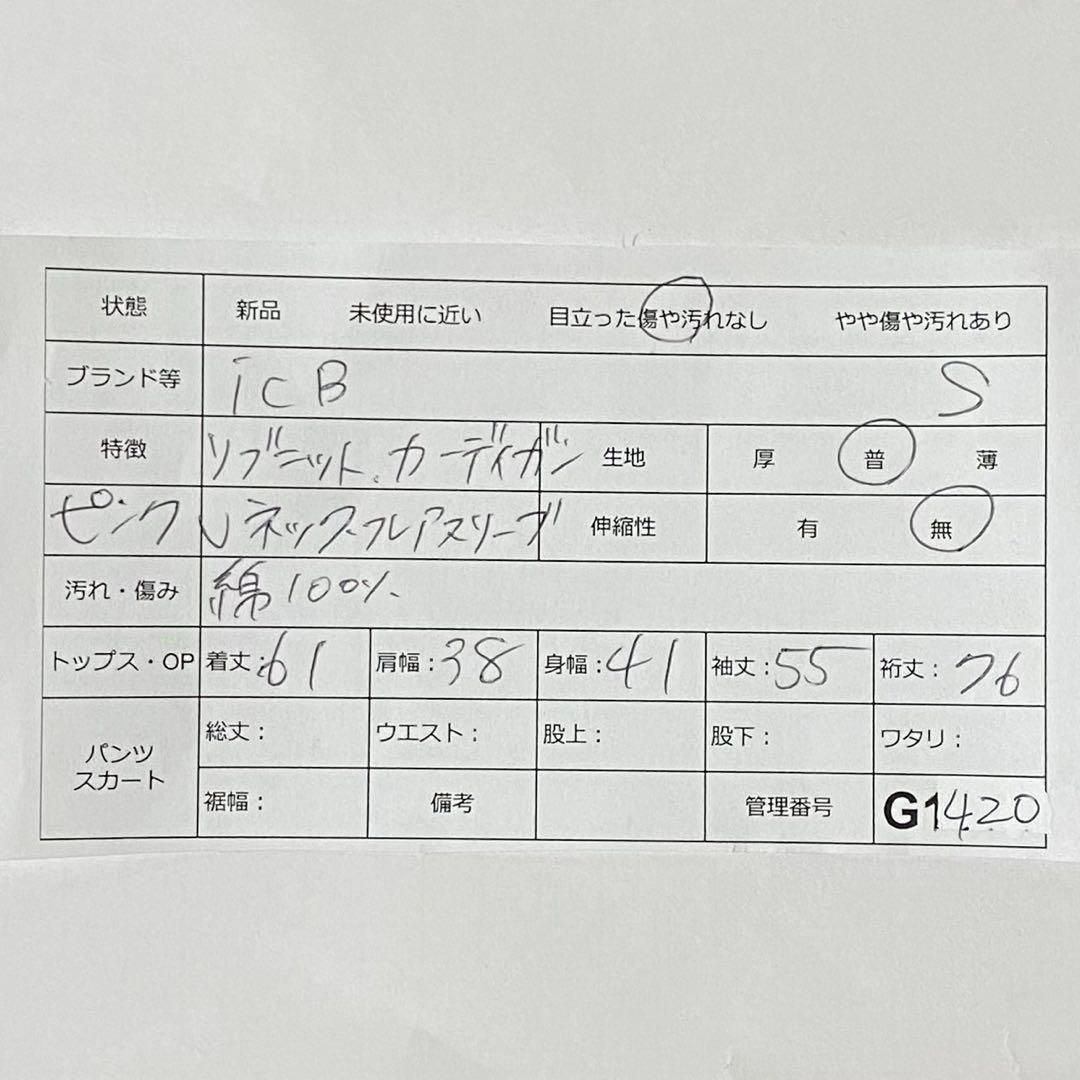 状態 新品 未使用に近い 目立った傷や汚れなし やや傷や汚れあり
ブランド等 iCB S
特徴 リブニット.カーディガン 生地 厚 普 薄
ピンク Vネックフレアスリーブ 伸縮性 有 無
汚れ・傷み 綿100%
トップス・OP 着丈:61 肩幅:38 身幅:41 袖丈:55 裄丈:76
パンツ スカート 総丈: ウエスト: 股上: 股下: ワタリ:
裾幅: 備考 管理番号 G1420